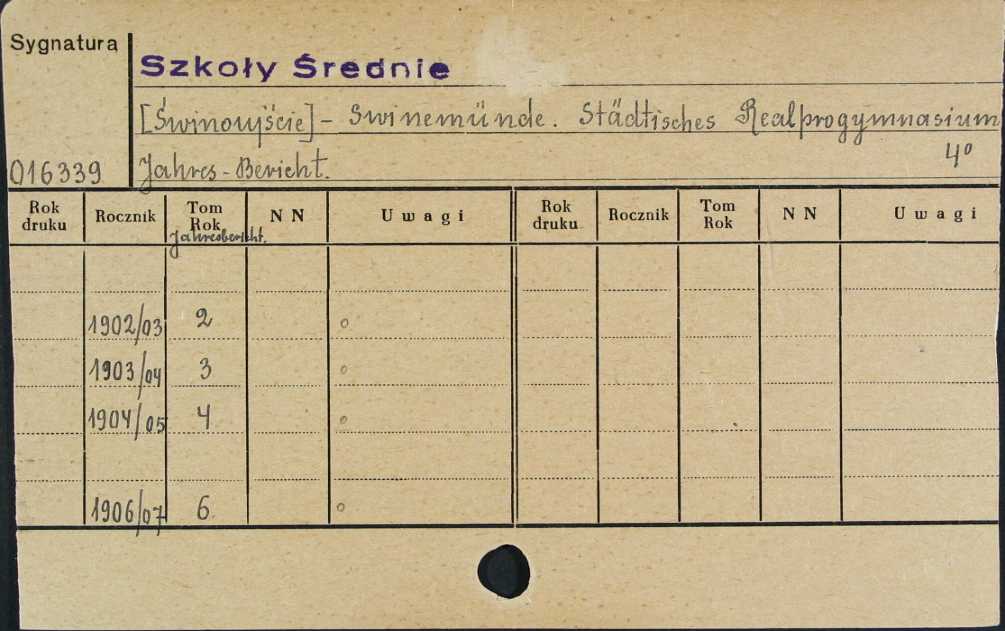 Sygnatura
Szkoły Średnie
[Świnoujście] - Swinemünde. Städtisches Realprogymnasium
016339 Jahres-Bericht. 4°
Rok druku Rocznik Tom Rok N N Uwagi Rok druku Rocznik Tom Rok N N Uwagi
Jahresbericht.
1902/03 2 o
1903/04 3 o
1904/05 4 o
1906/07 6. o